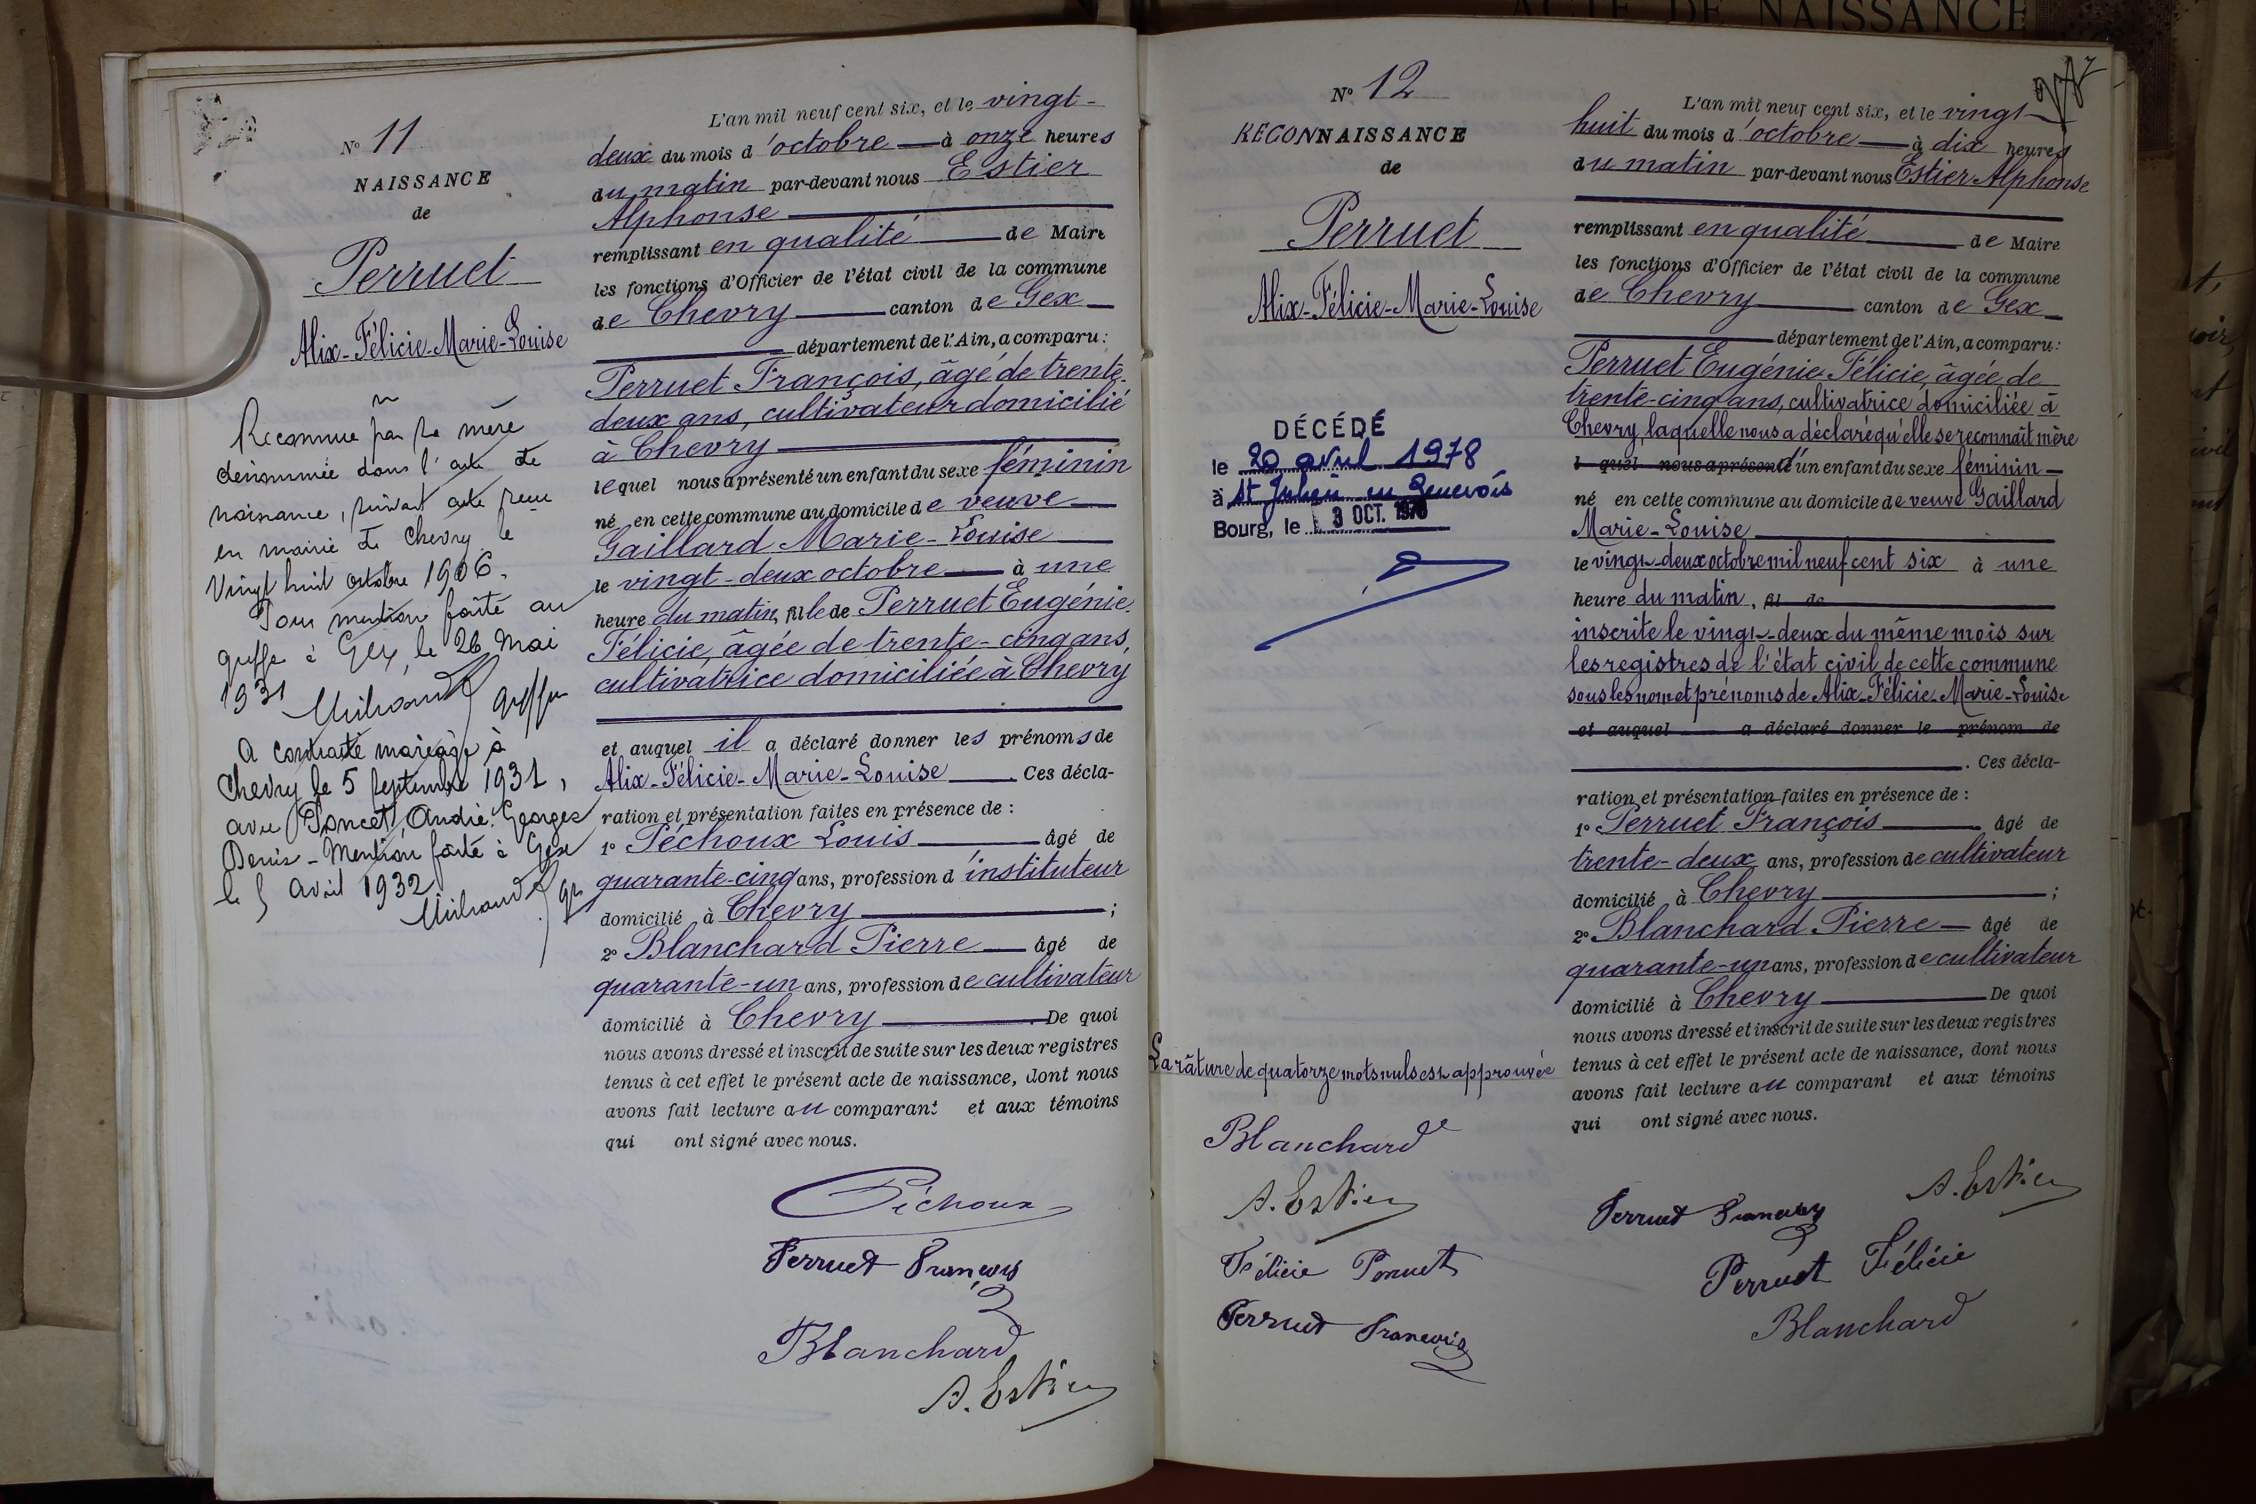 ACTE DE NAISSANCE
N° 11
NAISSANCE
de
Perruet
Alix-Félicie-Marie-Louise
Reconnue par la mère
dénommée dans l'acte de
naissance, suivant acte reçu
en mairie de Chevry le
Vingt huit octobre 1906.
Pour mention faite au
greffe à Gex, le 26 Mai
1931
A contracté mariage à
Chevry le 5 Septembre 1931,
avec Poncet, André Georges
Denis - Mention faite à Gex
le 5 avril 1932
L'an mil neuf cent six, et le vingt-
deux du mois d'octobre à onze heures
du matin par-devant nous Estier
Alphonse
remplissant en qualité de Maire
les fonctions d'Officier de l'état civil de la commune
de Chevry canton de Gex
département de l'Ain, a comparu:
Perruet François, âgé de trente-
deux ans, cultivateur domicilié
à Chevry
lequel nous a présenté un enfant du sexe féminin
né en cette commune au domicile de veuve
Gaillard Marie-Louise
le vingt-deux octobre à une
heure du matin, fille de Perruet Eugénie
Félicie, âgée de trente-cinq ans,
cultivatrice domiciliée à Chevry
et auquel il a déclaré donner les prénoms de
Alix-Félicie-Marie-Louise. Ces décla-
ration et présentation faites en présence de :
1° Péchoux Louis âgé de
quarante-cinq ans, profession d'instituteur
domicilié à Chevry ;
2° Blanchard Pierre âgé de
quarante-un ans, profession de cultivateur
domicilié à Chevry. De quoi
nous avons dressé et inscrit de suite sur les deux registres
tenus à cet effet le présent acte de naissance, dont nous
avons fait lecture au comparant et aux témoins
qui ont signé avec nous.
Péchoux
Perruet François
Blanchard
A. Estier
N° 12
RECONNAISSANCE
de
Perruet
Alix-Félicie-Marie-Louise
DÉCÉDÉ
le 20 avril 1978
à St Julien en Genevois
Bourg, le 3 OCT. 1978
La râture de quatorze mots nuls est approuvée
Blanchard
A. Estier
Félicie Perruet
Perruet François
L'an mil neuf cent six, et le vingt-
huit du mois d'octobre à dix heures
du matin par-devant nous Estier Alphonse
remplissant en qualité de Maire
les fonctions d'Officier de l'état civil de la commune
de Chevry canton de Gex
département de l'Ain, a comparu:
Perruet Eugénie Félicie, âgée de
trente-cinq ans, cultivatrice domiciliée à
Chevry, laquelle nous a déclaré qu'elle se reconnaît mère
l quel nous a présenté d'un enfant du sexe féminin
né en cette commune au domicile de veuve Gaillard
Marie-Louise
le vingt-deux octobre mil neuf cent six à une
heure du matin, fil de
inscrite le vingt-deux du même mois sur
les registres de l'état civil de cette commune
sous les nom et prénoms de Alix-Félicie-Marie-Louise
et auquel a déclaré donner le prénom de
. Ces décla-
ration et présentation faites en présence de :
1° Perruet François âgé de
trente-deux ans, profession de cultivateur
domicilié à Chevry ;
2° Blanchard Pierre âgé de
quarante-un ans, profession de cultivateur
domicilié à Chevry De quoi
nous avons dressé et inscrit de suite sur les deux registres
tenus à cet effet le présent acte de naissance, dont nous
avons fait lecture au comparant et aux témoins
qui ont signé avec nous.
A. Estier
Perruet François
Perruet Félicie
Blanchard